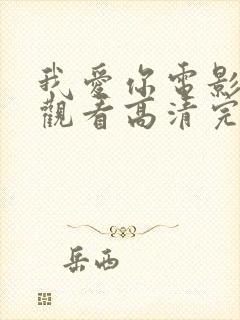 我愛你電影
觀看高清完
岳西